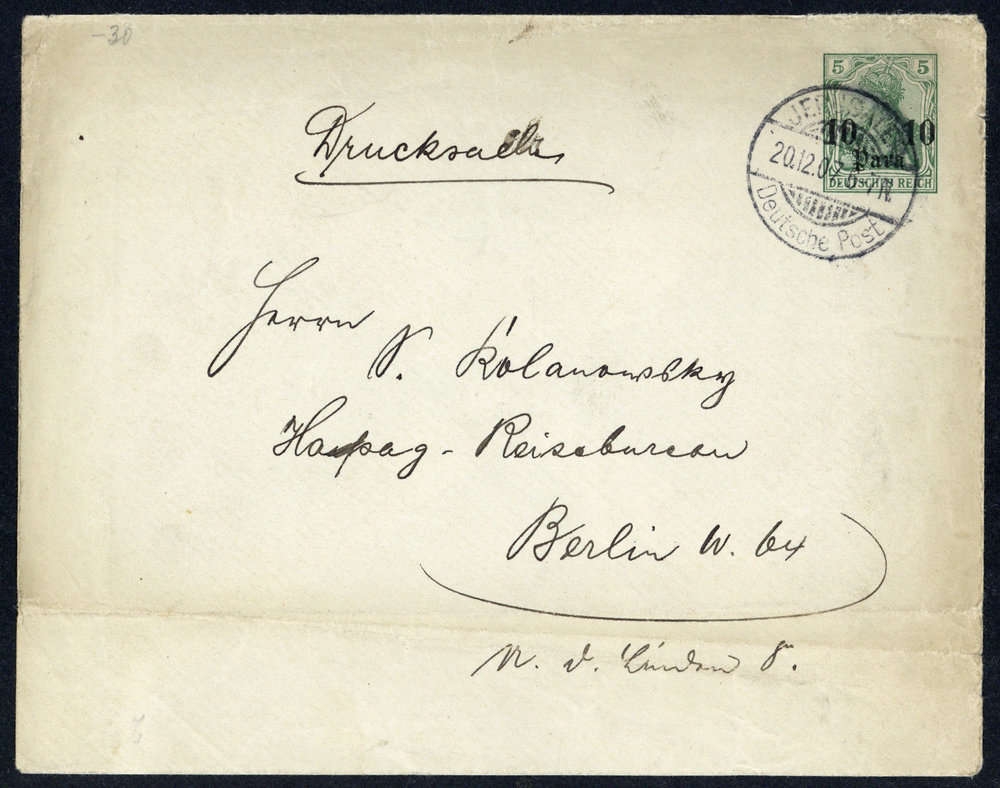 -30
5 5
10 10
Para
DEUTSCHES REICH
JERUSALEM
20.12.07 6-7N.
Deutsche Post
Drucksache
Herrn
S. Kolanowsky
Hapag - Reisebureau
Berlin W. 64
U. d. Linden 8.